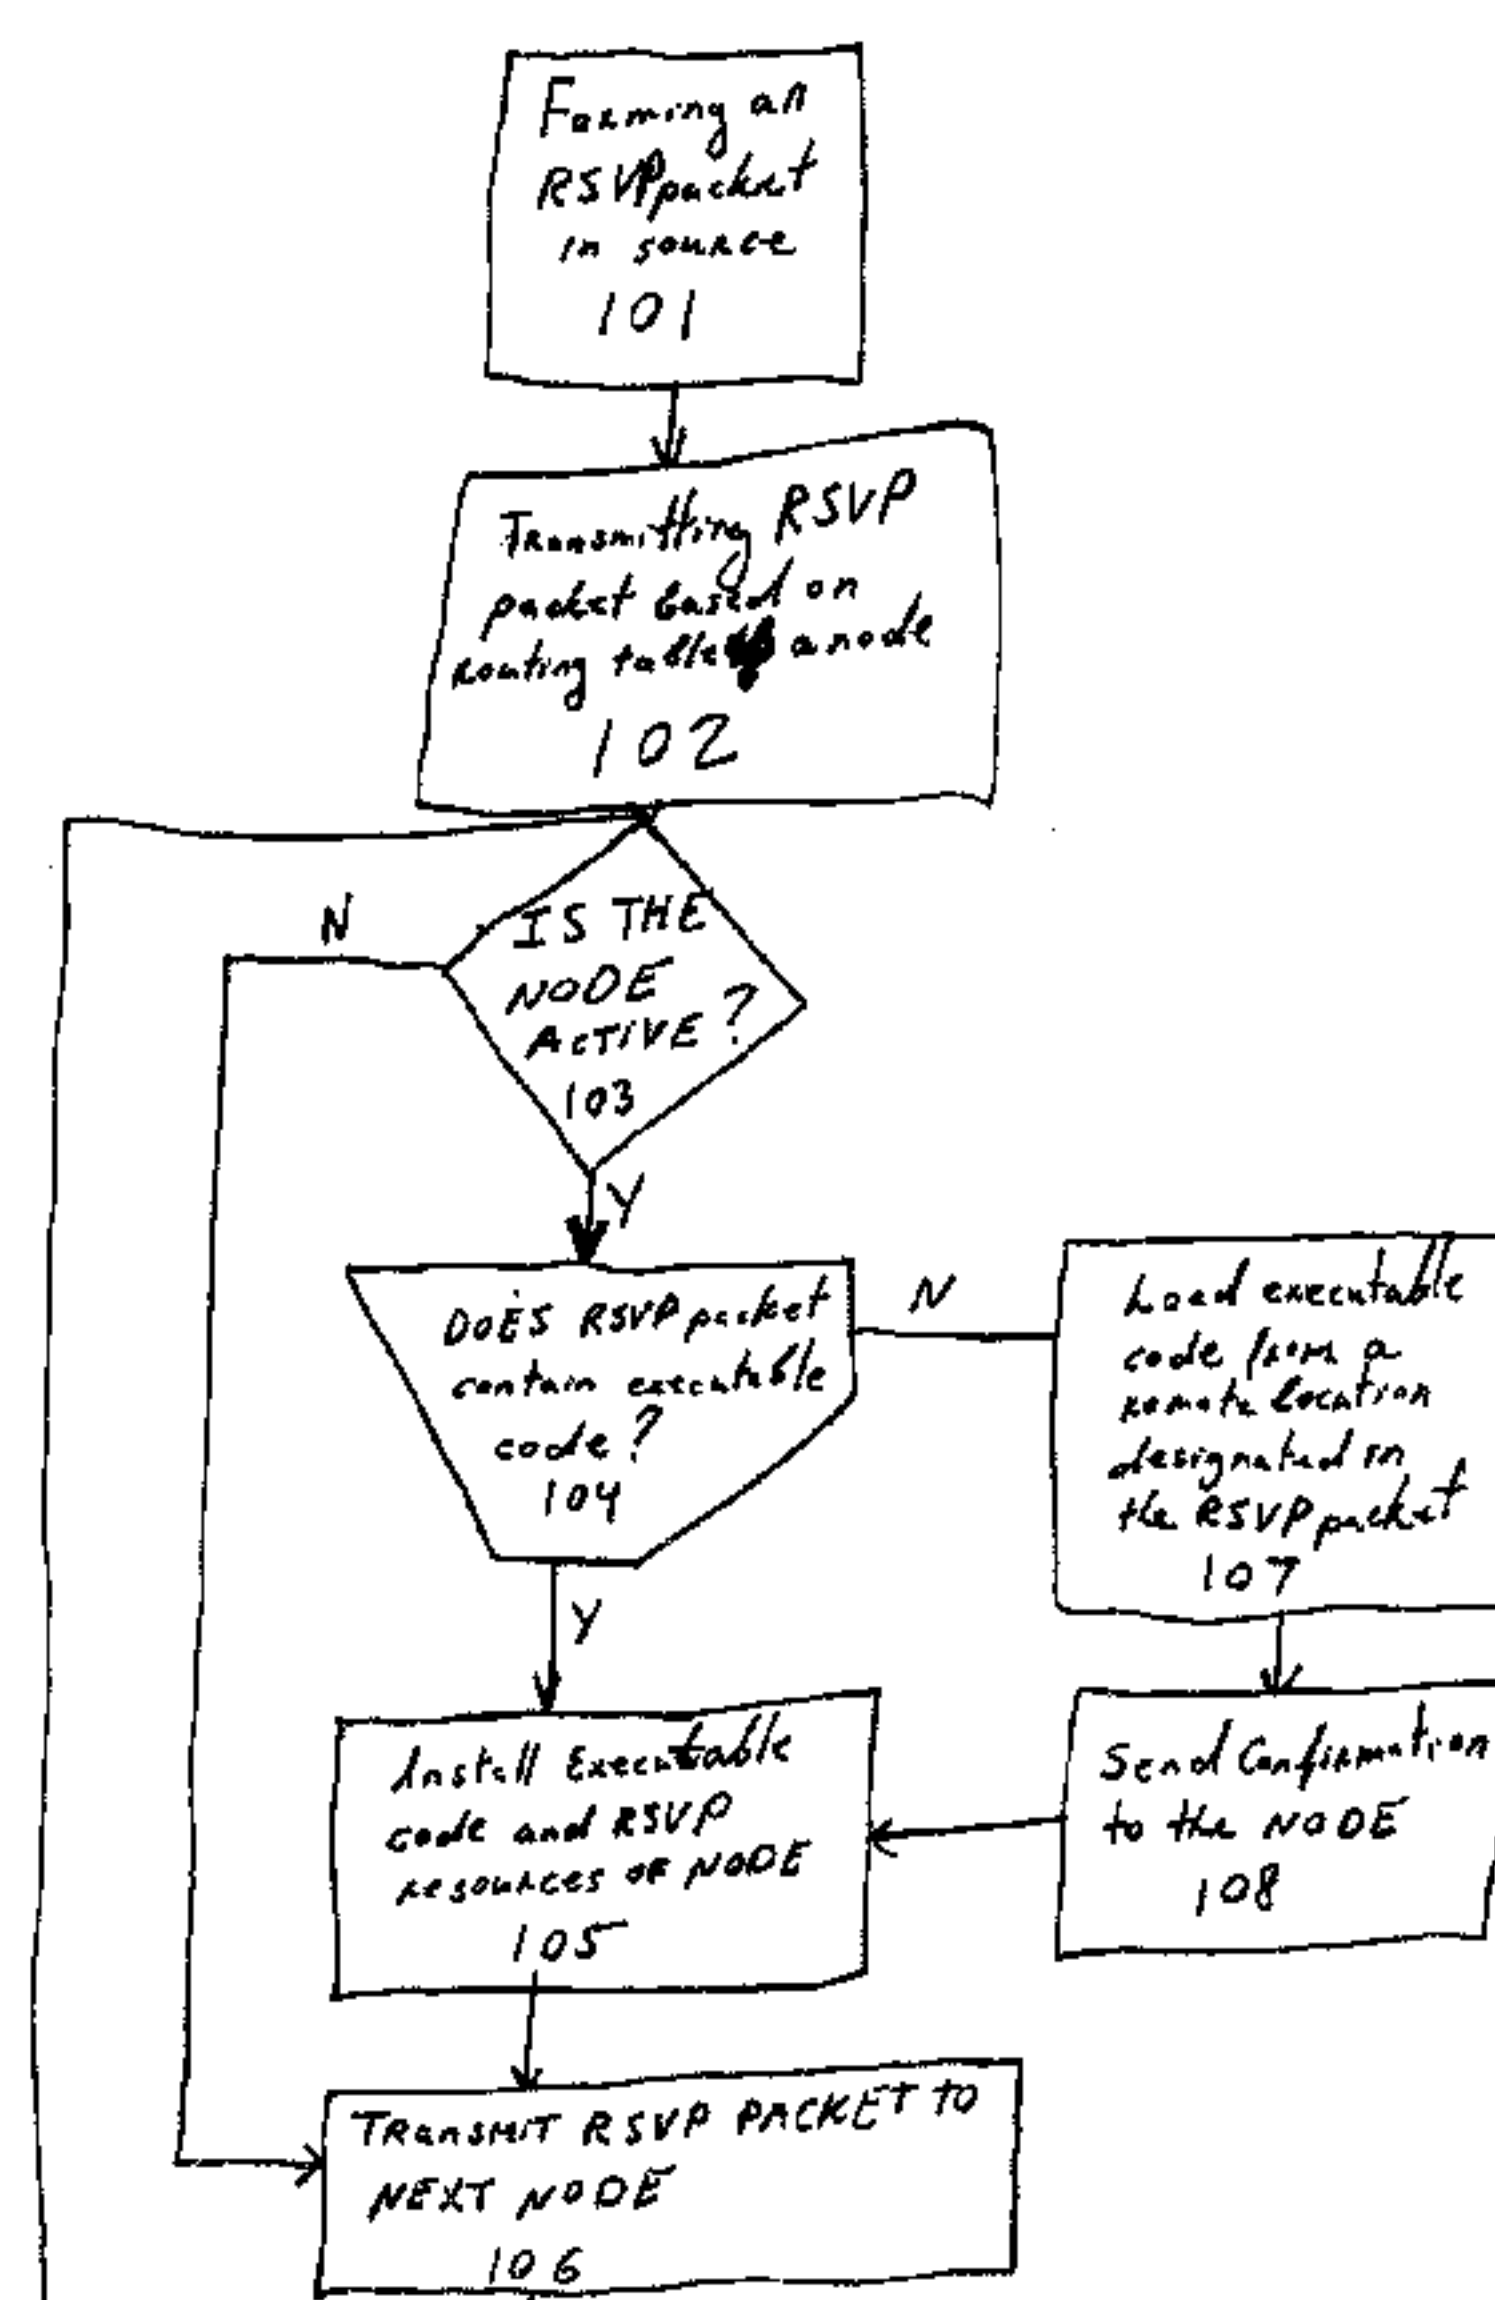 Forming an
RSVP packet
in source
101
Transmitting RSVP
packet based on
routing table a node
102
N
IS THE
NODE
ACTIVE?
103
Y
DOES RSVP packet
contain executable
code?
104
N
Load executable
code from a
remote location
designated in
the RSVP packet
107
Y
Install Executable
code and RSVP
resources of NODE
105
Send Confirmation
to the NODE
108
TRansmIT RSVP PACKET to
NEXT NODE
106